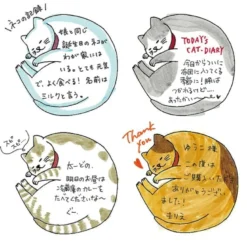 ネコの記録!
娘と同じ
誕生日のネコが
わが家には
いる。とても元気
で、よく食べる! 名前は
ミルクと言う。
TODAY'S
CAT-DIARY
今日からついに
布団に入ってくる
季節に! 腕は
つかれるけど…
あったかい〜
スピー
スピー
たーとの、
明日のお昼は
冷蔵庫のカレーを
たべてくださいな〜
ぐ〜
Thank
you
ゆうこ様
この度は
ご購入いただき
ありがとうござい
ました!
まりえ